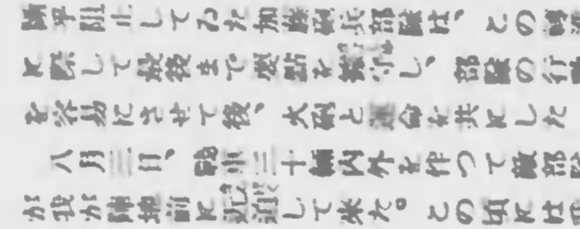 断乎阻止してゐた加藤砲兵部隊は、この
に際して最後まで要點を守し、部隊の行
を容易にさせて後、大砲と運命を共にした
八月三日、戰車三十輛内外を伴つて敵部隊
が我が陣地前に近迫して来た。この頃には